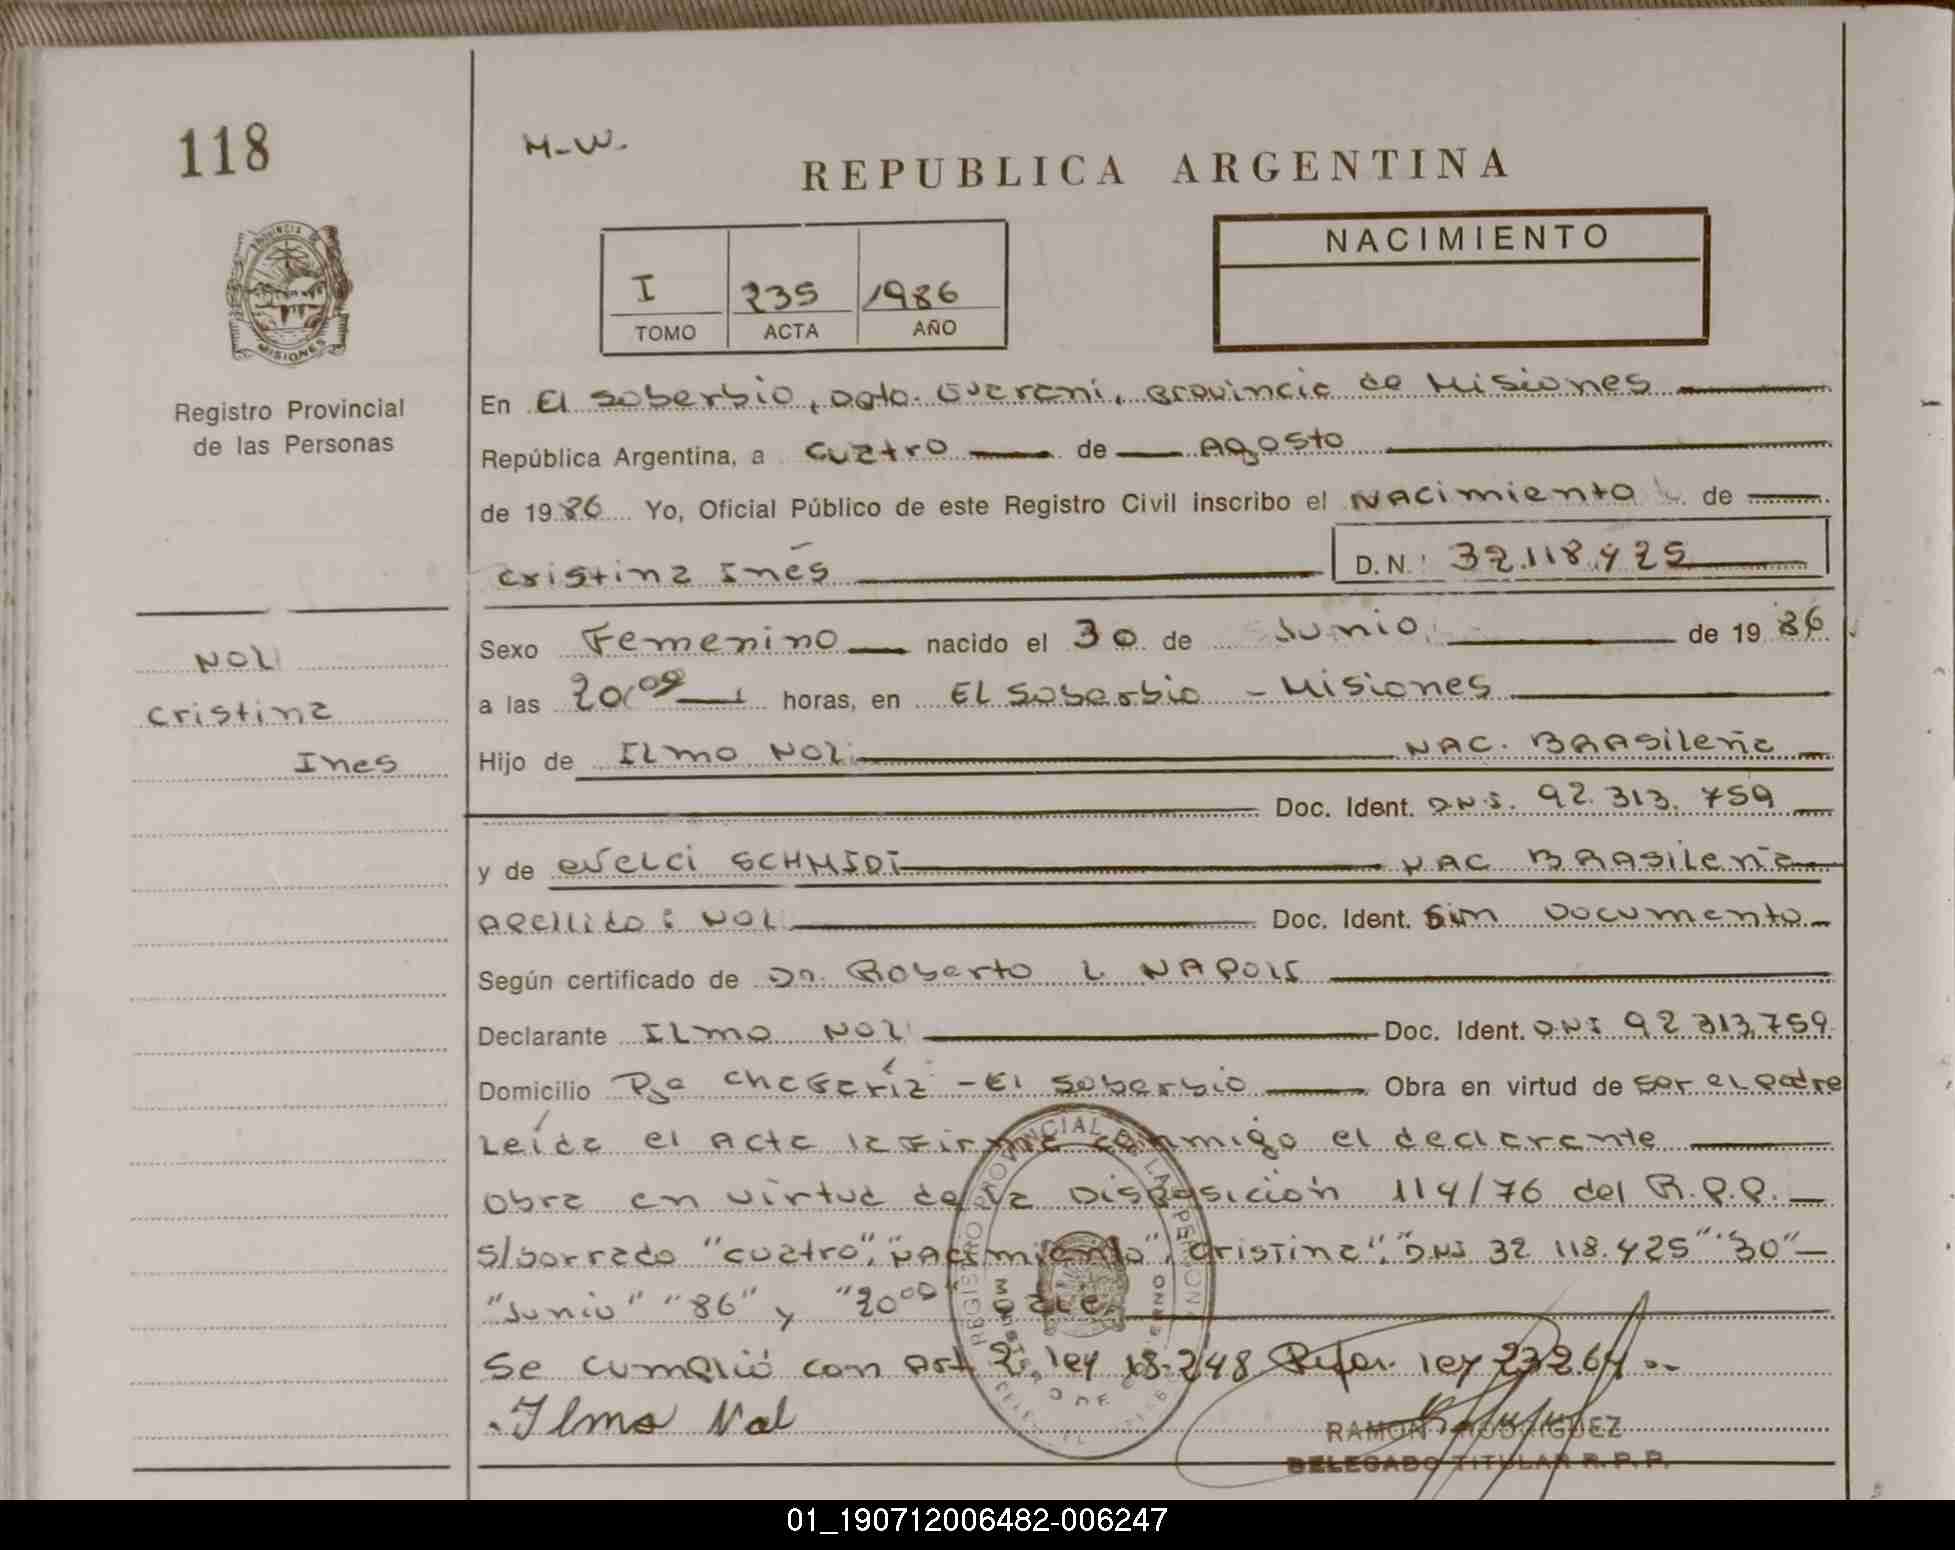 118
M-W.
REPUBLICA ARGENTINA
NACIMIENTO
I 235 1986
TOMO ACTA AÑO
PROVINCIA DE
MISIONES
Registro Provincial
de las Personas
En El Soberbio, Dpto. Guarani, Provincia de Misiones
República Argentina, a cuatro de Agosto
de 1986 Yo, Oficial Público de este Registro Civil inscribo el NACimiento de
Cristina Inés D.N.: 32.118.425
NOL
Cristina
Ines
Sexo Femenino nacido el 30 de Junio de 1986
a las 20,00 horas, en El Soberbio - Misiones
Hijo de Ilmo NOL NAC. BRASileña
Doc. Ident. D.N.I. 92.313.759
y de evelci SCHMIDT NAC BRASileña
Apellido: NOL Doc. Ident. Sin Documento
Según certificado de Dr. Roberto L. NAPOLI
Declarante Ilmo NOL Doc. Ident. D.N.I 92.313.759
Domicilio Pje Chafaríz - El Soberbio Obra en virtud de ser el padre
Leída el Acta la Firma conmigo el declarante
Obra en virtud de la Disposición 114/76 del R.P.P.
S/borrado "cuatro", "NACimiento", "Cristina", "DNI 32.118.425" "30"
"Junio" "86" y "20,00" vale.
Se cumplió con Art 2. ley 18.248 Refor. ley 23264
Ilmo Nol
REGISTRO PROVINCIAL DE LAS PERSONAS
RAMON RODRIGUEZ
DELEGADO TITULAR R.P.P.
01_190712006482-006247